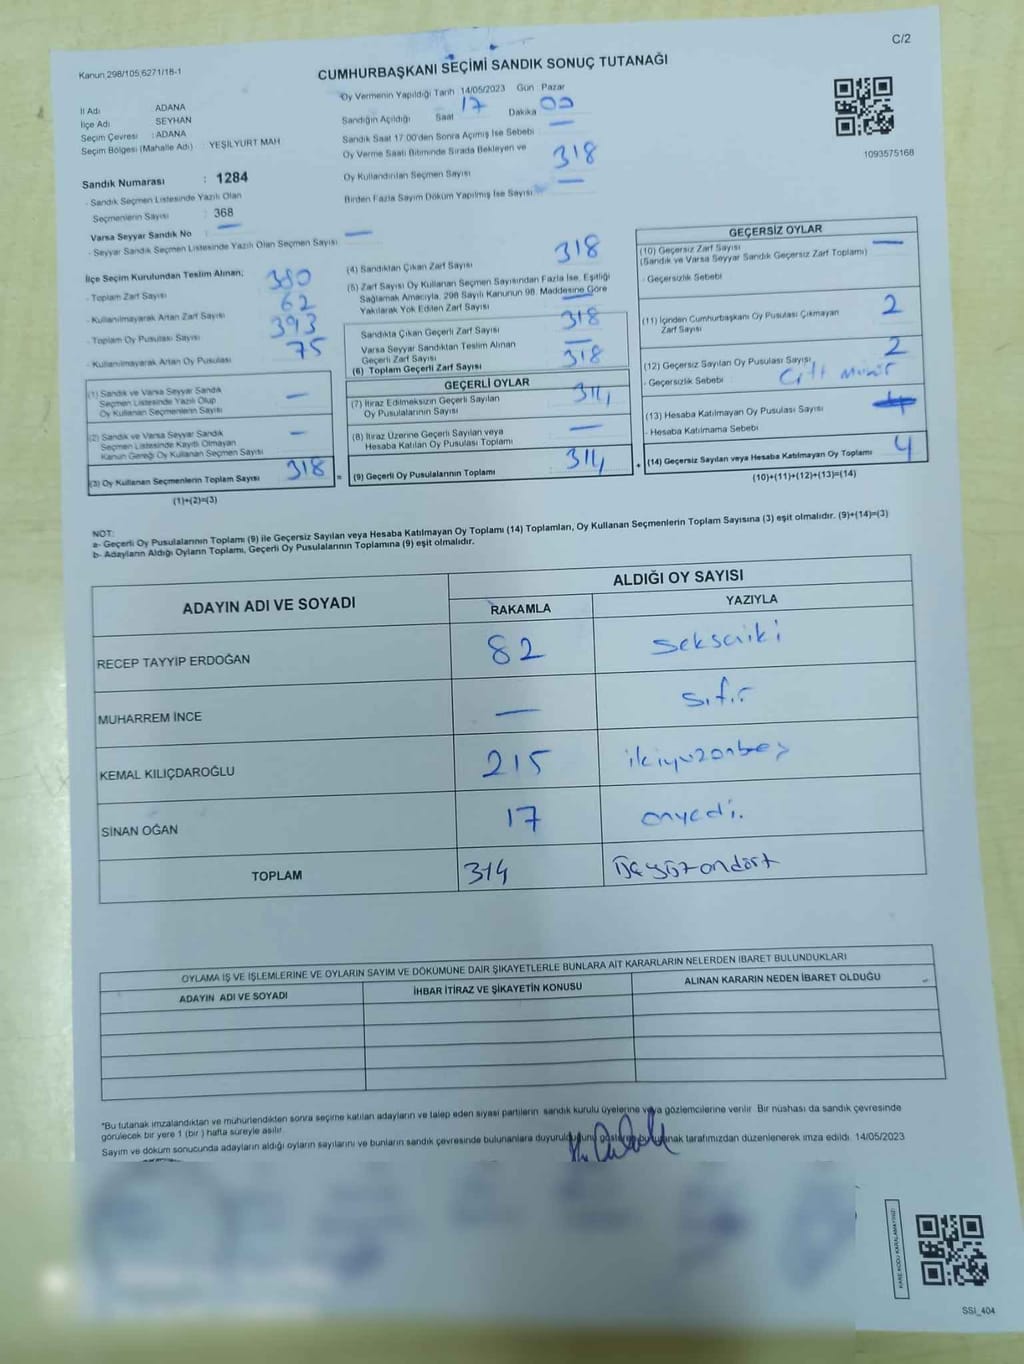 C/2
Kanun 298/105,6271/18-1
CUMHURBAŞKANI SEÇİMİ SANDIK SONUÇ TUTANAĞI
Oy Vermenin Yapıldığı Tarih 14/05/2023 Gün Pazar
İl Adı ADANA
İlçe Adı SEYHAN
Seçim Çevresi : ADANA
Seçim Bölgesi (Mahalle Adı) : YEŞİLYURT MAH
Sandığın Açıldığı Saat 17 Dakika 00
Sandık Saat 17:00'den Sonra Açılmış İse Sebebi —
Oy Verme Saati Bitiminde Sırada Bekleyen ve
Oy Kullandırılan Seçmen Sayısı 318
Birden Fazla Sayım Döküm Yapılmış İse Sayısı —
1093575168
Sandık Numarası : 1284
- Sandık Seçmen Listesinde Yazılı Olan
Seçmenlerin Sayısı : 368
Varsa Seyyar Sandık No —
- Seyyar Sandık Seçmen Listesinde Yazılı Olan Seçmen Sayısı —
İlçe Seçim Kurulundan Teslim Alınan;
- Toplam Zarf Sayısı 380
- Kullanılmayarak Artan Zarf Sayısı 62
- Toplam Oy Pusulası Sayısı 393
- Kullanılmayarak Artan Oy Pusulası 75
(1) Sandık ve Varsa Seyyar Sandık
Seçmen Listesinde Yazılı Olup
Oy Kullanan Seçmenlerin Sayısı —
(2) Sandık ve Varsa Seyyar Sandık
Seçmen Listesinde Kayıtlı Olmayan
Kanun Gereği Oy Kullanan Seçmen Sayısı —
(3) Oy Kullanan Seçmenlerin Toplam Sayısı 318 =
(1)+(2)=(3)
(4) Sandıktan Çıkan Zarf Sayısı 318
(5) Zarf Sayısı Oy Kullanan Seçmen Sayısından Fazla İse, Eşitliği
Sağlamak Amacıyla, 298 Sayılı Kanunun 98. Maddesine Göre
Yakılarak Yok Edilen Zarf Sayısı —
Sandıkta Çıkan Geçerli Zarf Sayısı 318
Varsa Seyyar Sandıktan Teslim Alınan
Geçerli Zarf Sayısı —
(6) Toplam Geçerli Zarf Sayısı 318
GEÇERLİ OYLAR
(7) İtiraz Edilmeksizin Geçerli Sayılan
Oy Pusulalarının Sayısı 314
(8) İtiraz Üzerine Geçerli Sayılan veya
Hesaba Katılan Oy Pusulası Toplamı —
(9) Geçerli Oy Pusulalarının Toplamı 314 +
GEÇERSİZ OYLAR
(10) Geçersiz Zarf Sayısı —
(Sandık ve Varsa Seyyar Sandık Geçersiz Zarf Toplamı)
- Geçersizlik Sebebi
(11) İçinden Cumhurbaşkanı Oy Pusulası Çıkmayan
Zarf Sayısı 2
(12) Geçersiz Sayılan Oy Pusulası Sayısı 2
- Geçersizlik Sebebi Çift Mühür
(13) Hesaba Katılmayan Oy Pusulası Sayısı
- Hesaba Katılmama Sebebi
(14) Geçersiz Sayılan veya Hesaba Katılmayan Oy Toplamı 4
(10)+(11)+(12)+(13)=(14)
NOT:
a- Geçerli Oy Pusulalarının Toplamı (9) ile Geçersiz Sayılan veya Hesaba Katılmayan Oy Toplamı (14) Toplamları, Oy Kullanan Seçmenlerin Toplam Sayısına (3) eşit olmalıdır. (9)+(14)=(3)
b- Adayların Aldığı Oyların Toplamı, Geçerli Oy Pusulalarının Toplamına (9) eşit olmalıdır.
ADAYIN ADI VE SOYADI ALDIĞI OY SAYISI
RAKAMLA YAZIYLA
RECEP TAYYİP ERDOĞAN 82 seksaiki
MUHARREM İNCE — sıfır
KEMAL KILIÇDAROĞLU 215 ikiyüzonbeş
SİNAN OĞAN 17 onyedi.
TOPLAM 314 üçyüzondört
OYLAMA İŞ VE İŞLEMLERİNE VE OYLARIN SAYIM VE DÖKÜMÜNE DAİR ŞİKAYETLERLE BUNLARA AİT KARARLARIN NELERDEN İBARET BULUNDUKLARI
ADAYIN ADI VE SOYADI İHBAR İTİRAZ VE ŞİKAYETİN KONUSU ALINAN KARARIN NEDEN İBARET OLDUĞU
*Bu tutanak imzalandıktan ve mühürlendikten sonra seçime katılan adayların ve talep eden siyasi partilerin sandık kurulu üyelerine veya gözlemcilerine verilir. Bir nüshası da sandık çevresinde
görülecek bir yere 1 (bir) hafta süreyle asılır.
Sayım ve döküm sonucunda adayların aldığı oyların sayılarını ve bunların sandık çevresinde bulunanlara duyurulduğunu gösteren bu tutanak tarafımızdan düzenlenerek imza edildi. 14/05/2023
KARE KODU KARALAMAYINIZ!
SSİ_404